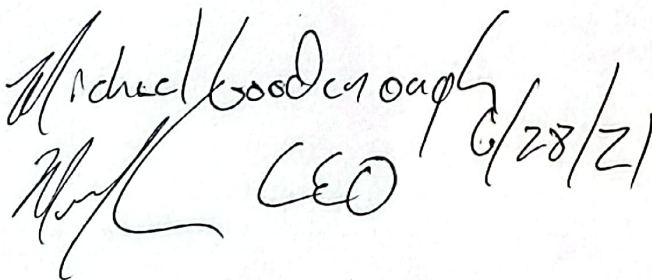 Michael Goodenough
6/28/21
CEO